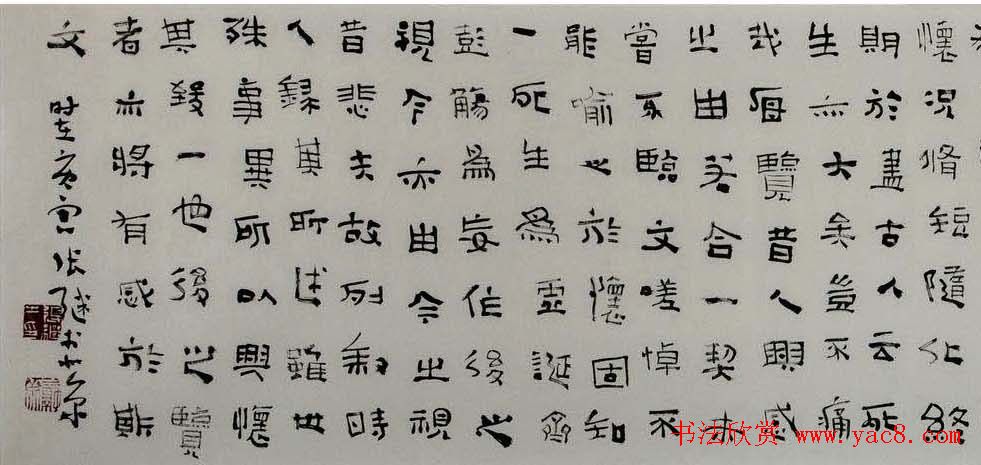 懷況脩短隨化終
期於盡古人云死
生亦大矣豈不痛
哉每覽昔人興感
之由若合一契未
嘗不臨文嗟悼不
能喻之於懷固知
一死生為虛誕齊
彭觴為妄作後之
視今亦由今之視
昔悲夫故列敘時
人錄其所述雖世
殊事異所以興懷
其致一也後之覽
者亦將有感於斯
文 時在庚寅張繼於北京
书法欣赏 www.yac8.com